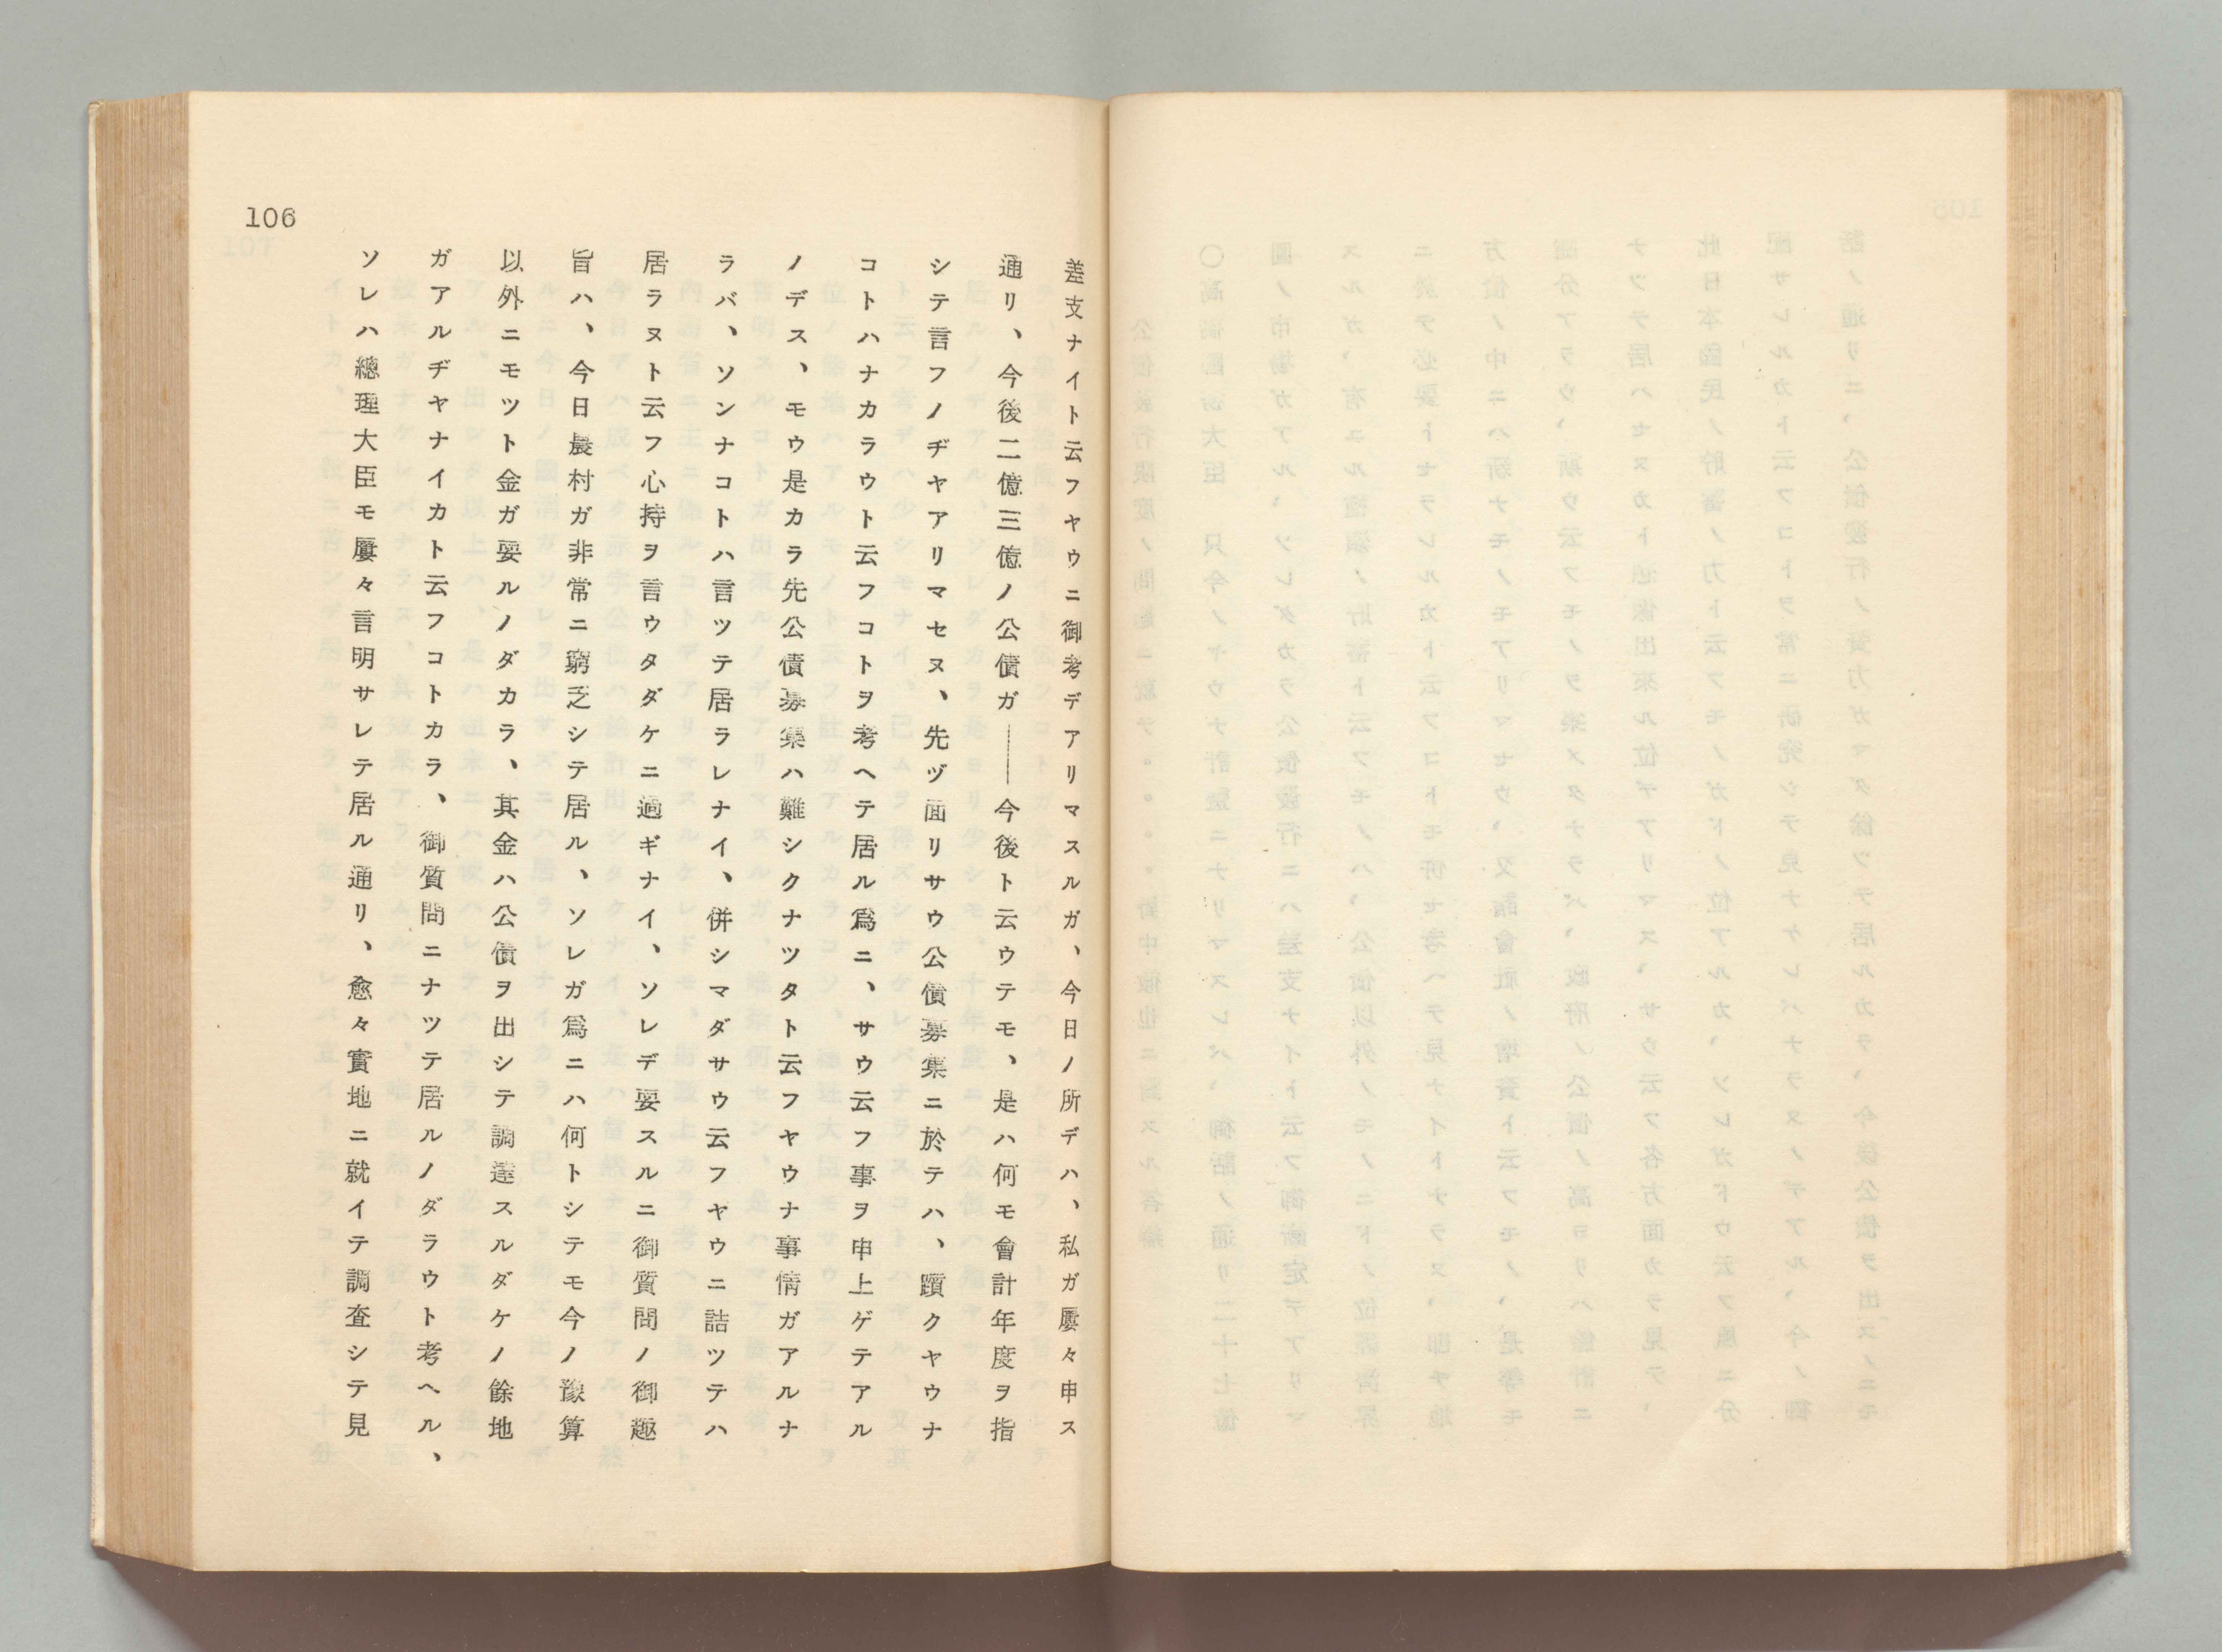 106
差支ナイト云フヤウニ御考デアリマスルガ、今日ノ所デハ、私ガ屢々申ス
通リ、今後二億三億ノ公債ガ――今後ト云ウテモ、是ハ何モ會計年度ヲ指
シテ言フノヂヤアリマセヌ、先ヅ面リサウ公債募集ニ於テハ、躓クヤウナ
コトハナカラウト云フコトヲ考ヘテ居ル爲ニ、サウ云フ事ヲ申上ゲテアル
ノデス、モウ是カラ先公債募集ハ難シクナツタト云フヤウナ事情ガアルナ
ラバ、ソンナコトハ言ツテ居ラレナイ、併シマダサウ云フヤウニ詰ツテハ
居ラヌト云フ心持ヲ言ウタダケニ過ギナイ、ソレデ要スルニ御質問ノ御趣
旨ハ、今日農村ガ非常ニ窮乏シテ居ル、ソレガ爲ニハ何トシテモ今ノ豫算
以外ニモツト金ガ要ルノダカラ、其金ハ公債ヲ出シテ調達スルダケノ餘地
ガアルヂヤナイカト云フコトカラ、御質問ニナツテ居ルノダラウト考ヘル、
ソレハ總理大臣モ屢々言明サレテ居ル通リ、愈々實地ニ就イテ調査シテ見